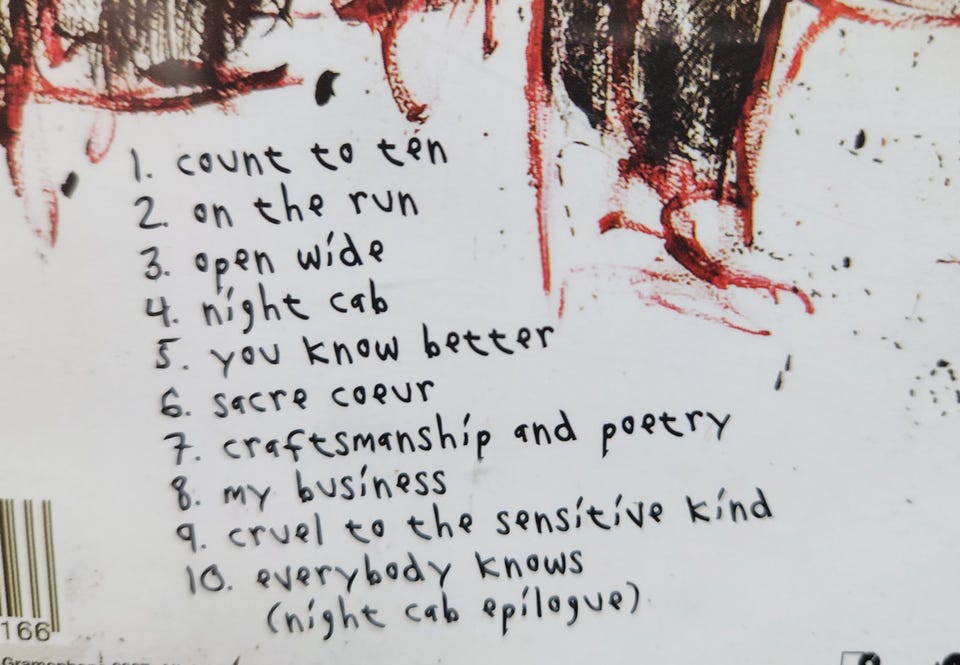 1. count to ten
2. on the run
3. open wide
4. night cab
5. you know better
6. sacre coeur
7. craftsmanship and poetry
8. my business
9. cruel to the sensitive kind
10. everybody knows
(night cab epilogue)
166